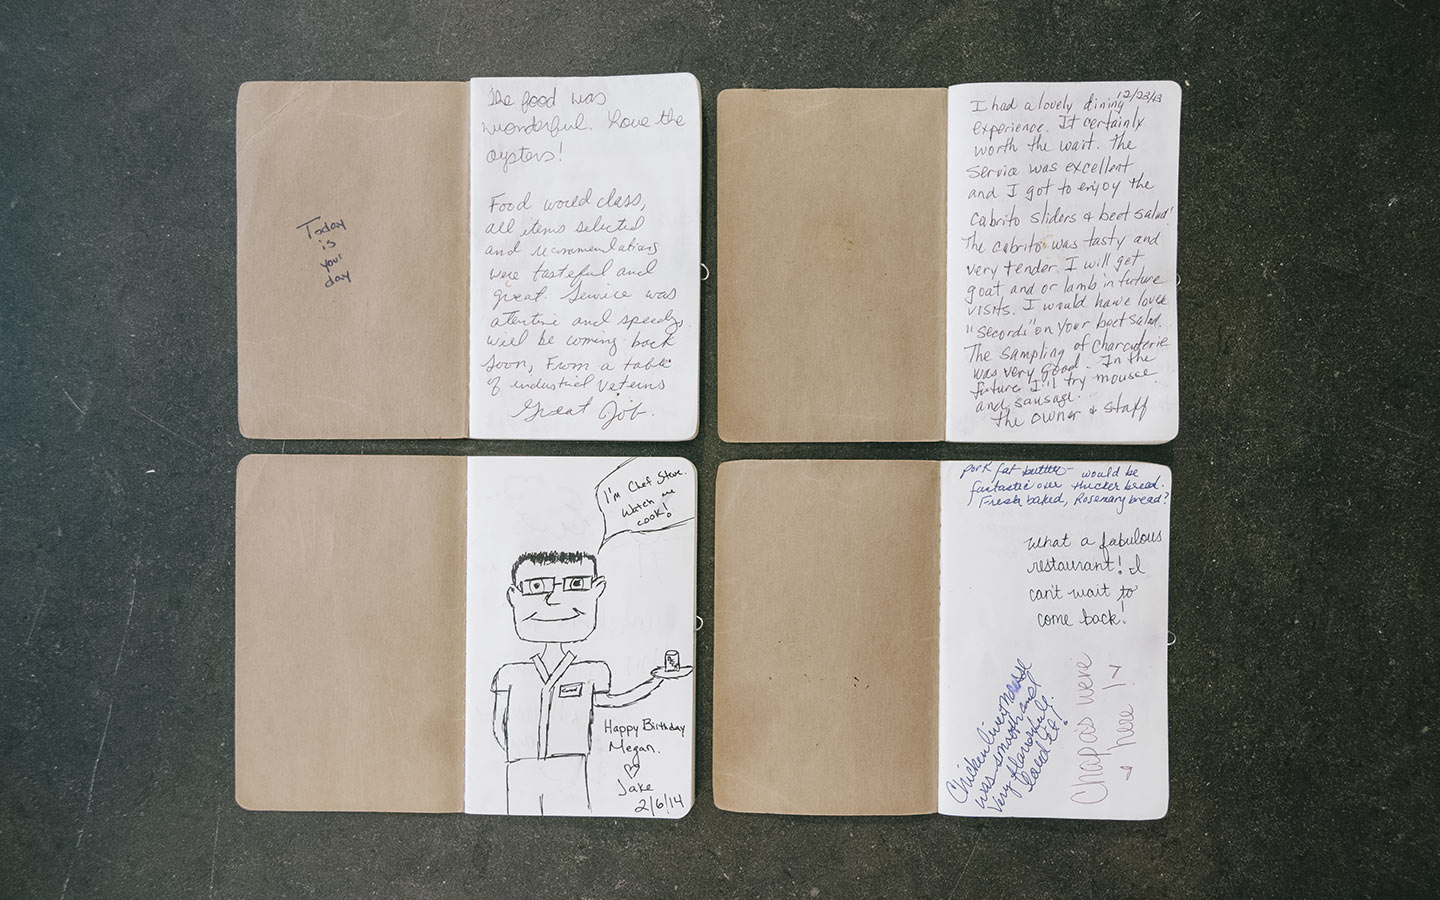 Today
is
your
day
The food was
wonderful. Love the
oysters!
Food world class,
all items selected
and recommendations
were tasteful and
great. Service was
attentive and speedy,
will be coming back
soon, From a table
of industrial veterns
Great Job.
12/23/13
I had a lovely dining
experience. It certainly
worth the wait. The
service was excellent
and I got to enjoy the
Cabrito sliders & beet salad!
The cabrito was tasty and
very tender. I will get
goat and or lamb in future
visits. I would have loved
"seconds" on your beet salad.
The sampling of charcuterie
was very good. In the
future I'll try mousse
and sausage.
The owner & staff
I'm Chef Steve.
Watch me
cook!
Happy Birthday
Megan.
♡
Jake
2/6/14
pork fat butter - would be
fantastic over thicker bread.
Fresh baked, Rosemary bread?
What a fabulous
restaurant! I
can't wait to
come back!
Chicken liver mousse
was smooth and
very flavorful.
Loved it!
Chapas were
here!